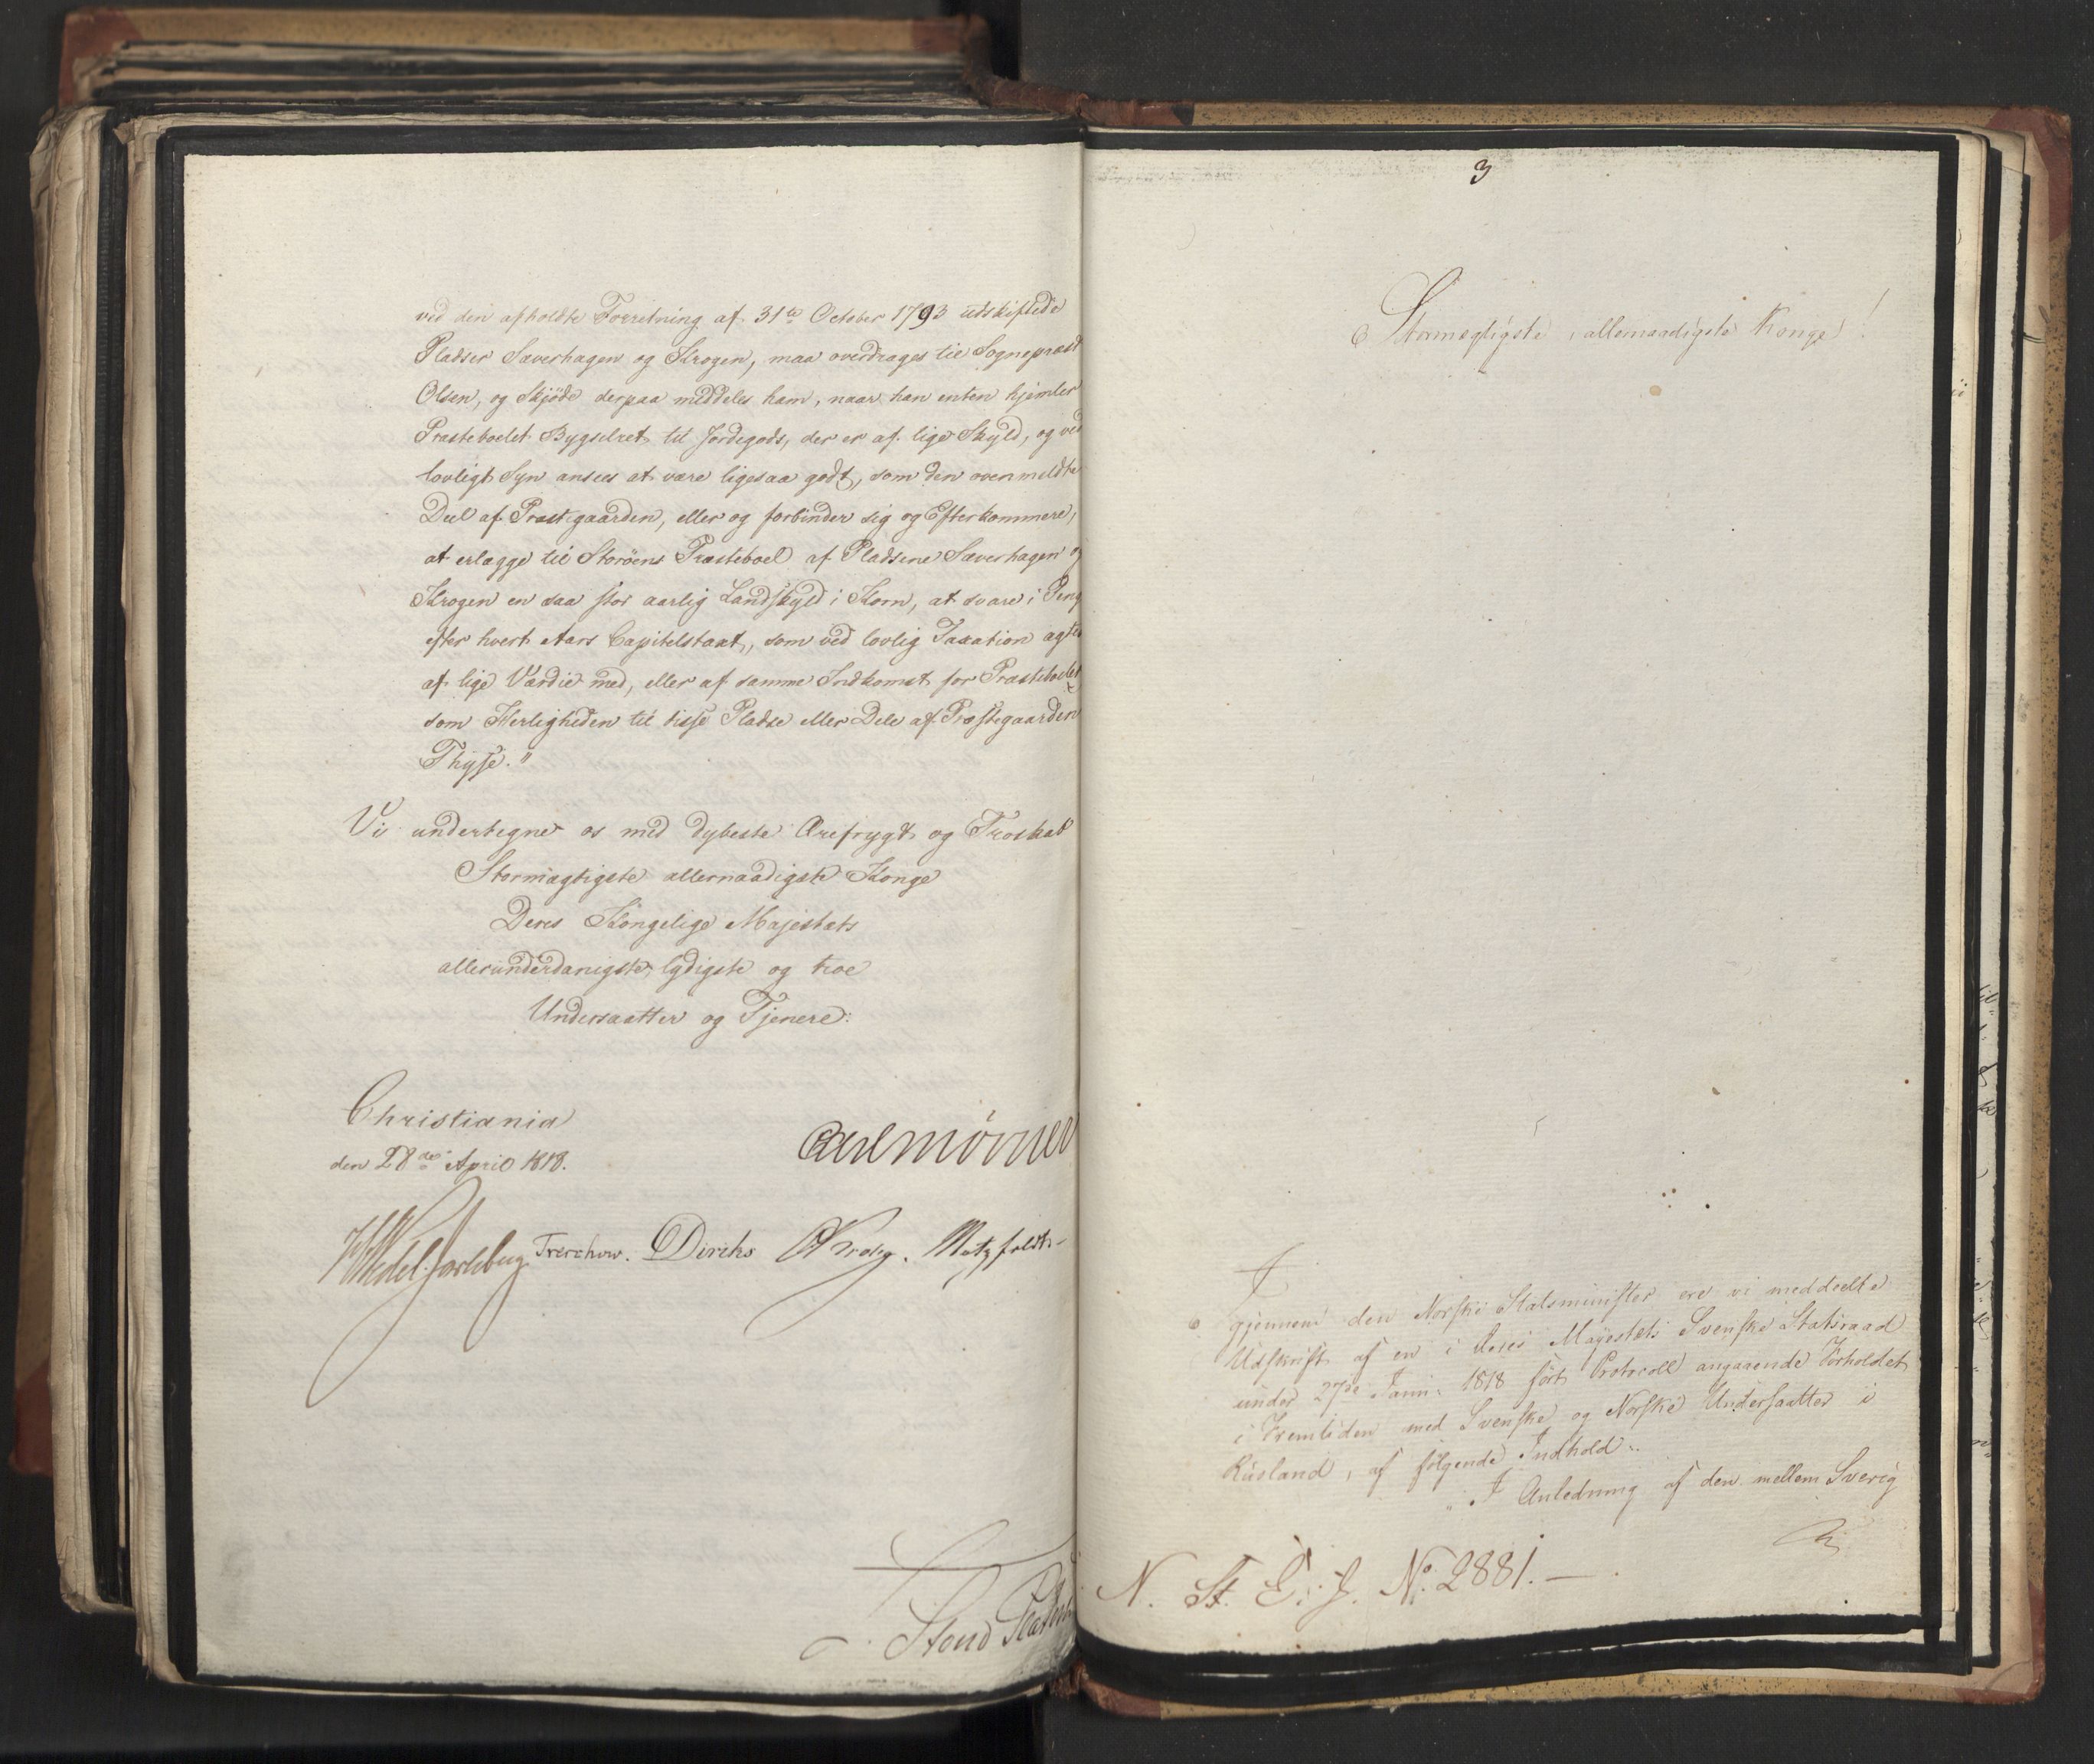 ved den afholdte Forretning af 31te October 1793 udskiftede
Pladser Saverhagen og Krogen, maa overdrages til Sognepræst
Olsen, og Skjöde derpaa meddeles ham, naar han enten hjemler
Præsteboelet Bygselret til Jordegods, der er af lige Skyld, og ved
lovligt Syn ansees at være ligesaa godt, som den ovenmeldte
Deel af Præstegaarden, eller og forbinder sig og Efterkommere,
at erlægge til Storöens Præsteboel af Pladsene Saverhagen og
Krogen en saa stor aarlig Landskyld i Korn, at svare i Peng
efter hvert Aars Capitelstaxt, som ved lovlig Taxation agtes
af lige Værdie med, eller af samme Indkomst for Præsteboelet
som Herligheden til disse Pladse eller Dele af Præstegaarden
Thyse."
Vi undertegne os med dybeste Ærefrygt og Troskab
Stormægtigste allernaadigste Konge
Deres Kongelige Majestæts
allerunderdanigste, lydigste og troe
Undersaatter og Tjenere:
Christiania
den 28de April 1818.
Carl Mörner
HWedel Jarlsberg Treschow. Diriks Krog. Motzfeldt
3
Stormægtigste, allernaadigste Konge!
I
gjennem den Norske Statsminister ere vi meddeelte
Udskrift af en i Deres Majestets Svenske Statsraad
under 27de Janu: 1818 fört Protocoll angaaende Forholdet
i Fremtiden med Svenske og Norske Undersaatter i
Rusland, af fölgende Indhold:
"I Anledning af den mellem Sverig
N. St. E. J. No. 2881.